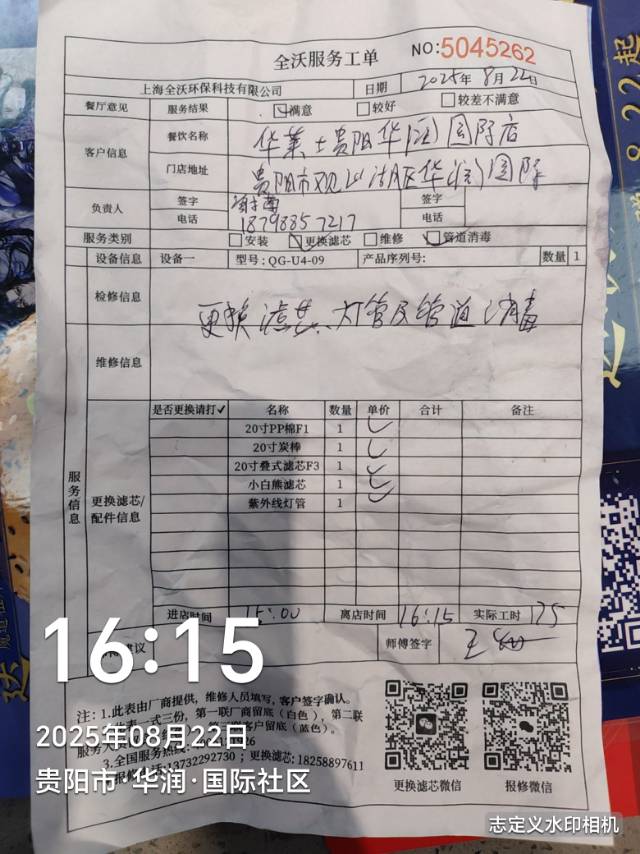 全沃服务工单
NO:5045262
上海全沃环保科技有限公司 日期 2025年8月22日
餐厅意见 服务结果 满意 较好 较差不满意
客户信息 餐饮名称 华莱士贵阳华润国际店
门店地址 贵阳市观山湖区华润国际
负责人 签字 签字
电话 18798857217 电话
服务类别 安装 更换滤芯 维修 管道消毒
设备信息 设备一 型号:QG-U4-09 产品序列号: 数量 1
检修信息 更换滤芯.灯管及管道消毒
维修信息
服务信息
更换滤芯/配件信息
是否更换请打✓ 名称 数量 单价 合计 备注
20寸PP棉F1 1
20寸炭棒 1
20寸叠式滤芯F3 1
小白熊滤芯 1
紫外线灯管 1
进店时间 15:00 离店时间 16:15 实际工时 75
建议 师傅签字
注:1.此表由厂商提供,维修人员填写,客户签字确认。
一式三份,第一联厂商留底(白色),第二联
客户留底(蓝色)。
3.全国服务热线
报修 :13732292730 ;更换滤芯:18258897611
更换滤芯微信 报修微信
16:15
2025年08月22日
贵阳市·华润·国际社区
志定义水印相机
8.22起